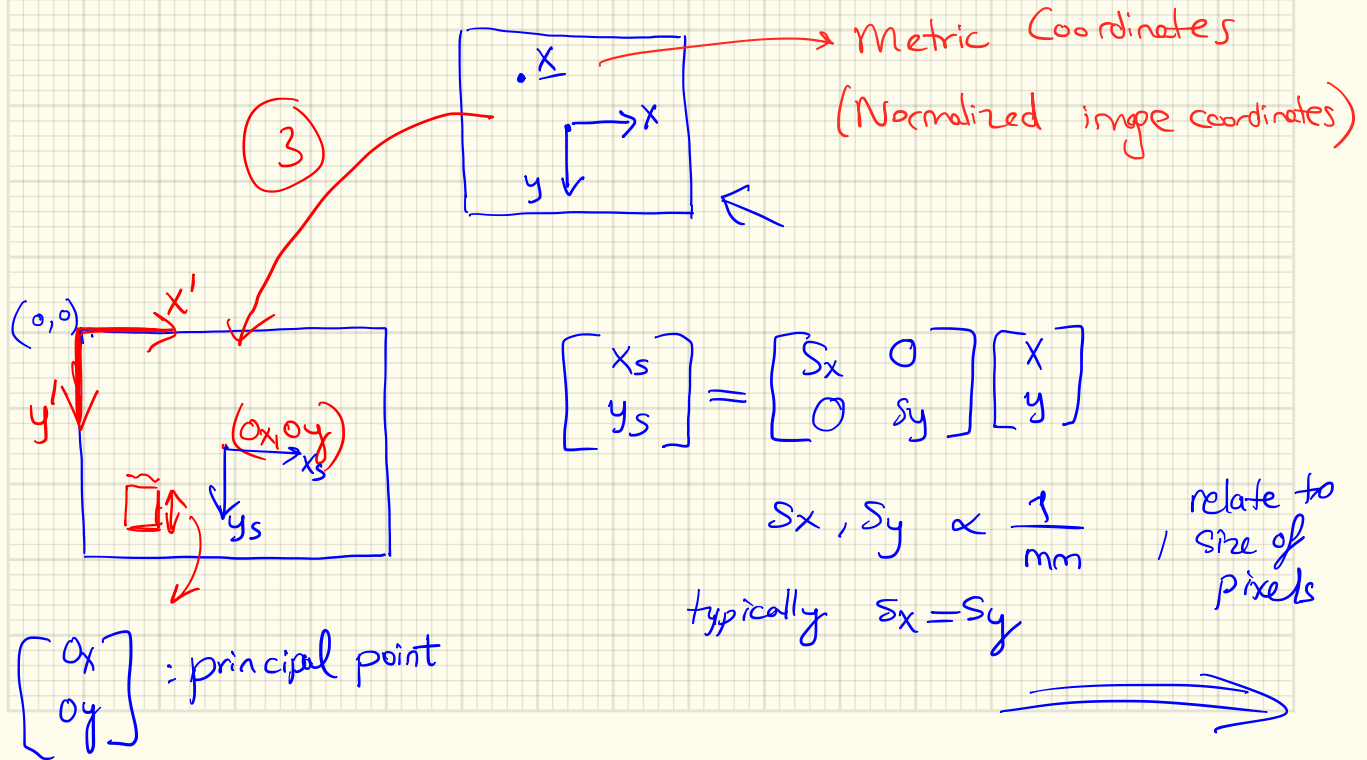 Metric Coordinates
(Normalized image coordinates)
x
x
y
3
(0,0)
x'
y'
(Ox, Oy)
xs
ys
[xs ys] = [Sx 0 0 Sy] [x y]
Sx, Sy ∝ 1/mm, relate to
size of
pixels
typically Sx = Sy
[Ox Oy] : principal point